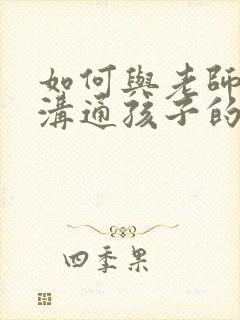 如何與老師
溝通孩子的
四季果